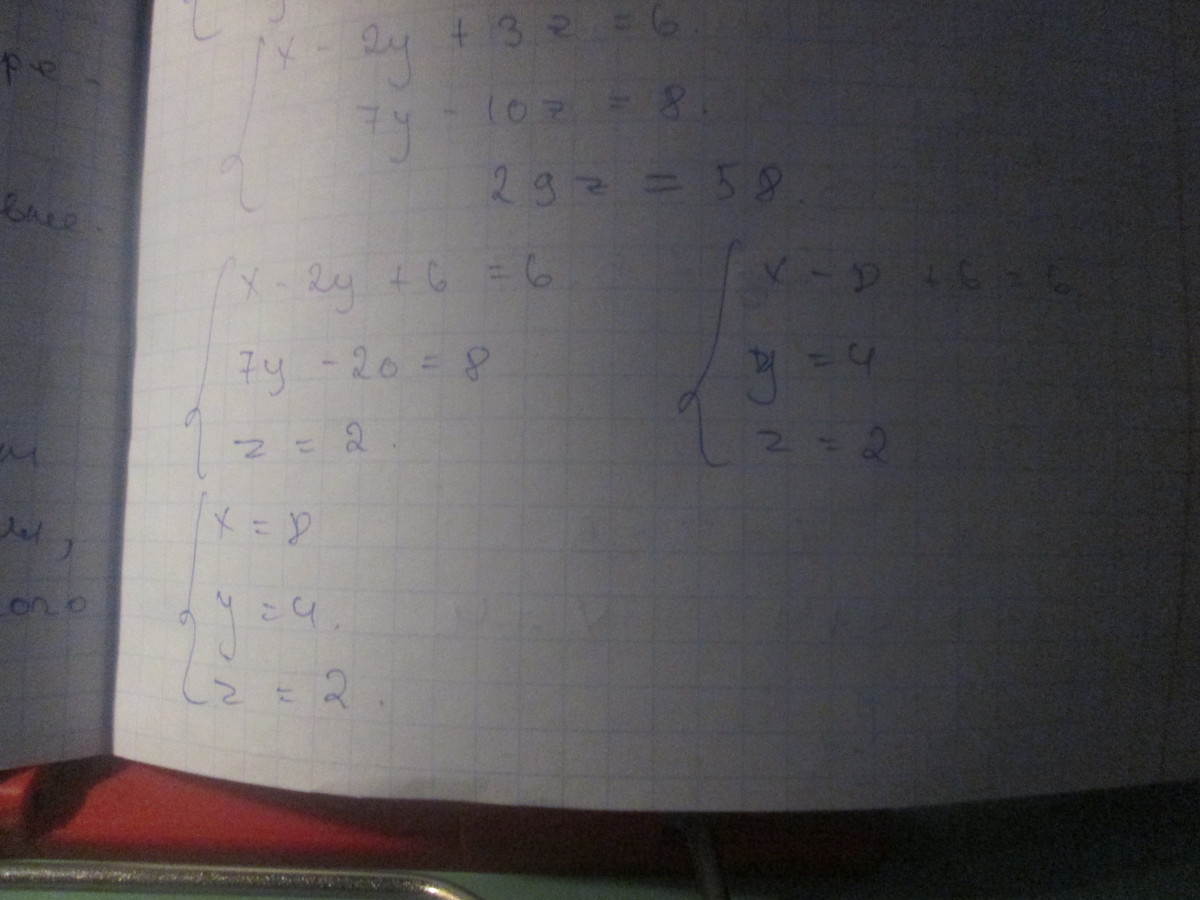 x - 2y + 3z = 6.
7y - 10z = 8.
29z = 58.
x - 2y + 6 = 6
7y - 20 = 8
z = 2.
x - 8 + 6 = 6
y = 4
z = 2
x = 8
y = 4.
z = 2.